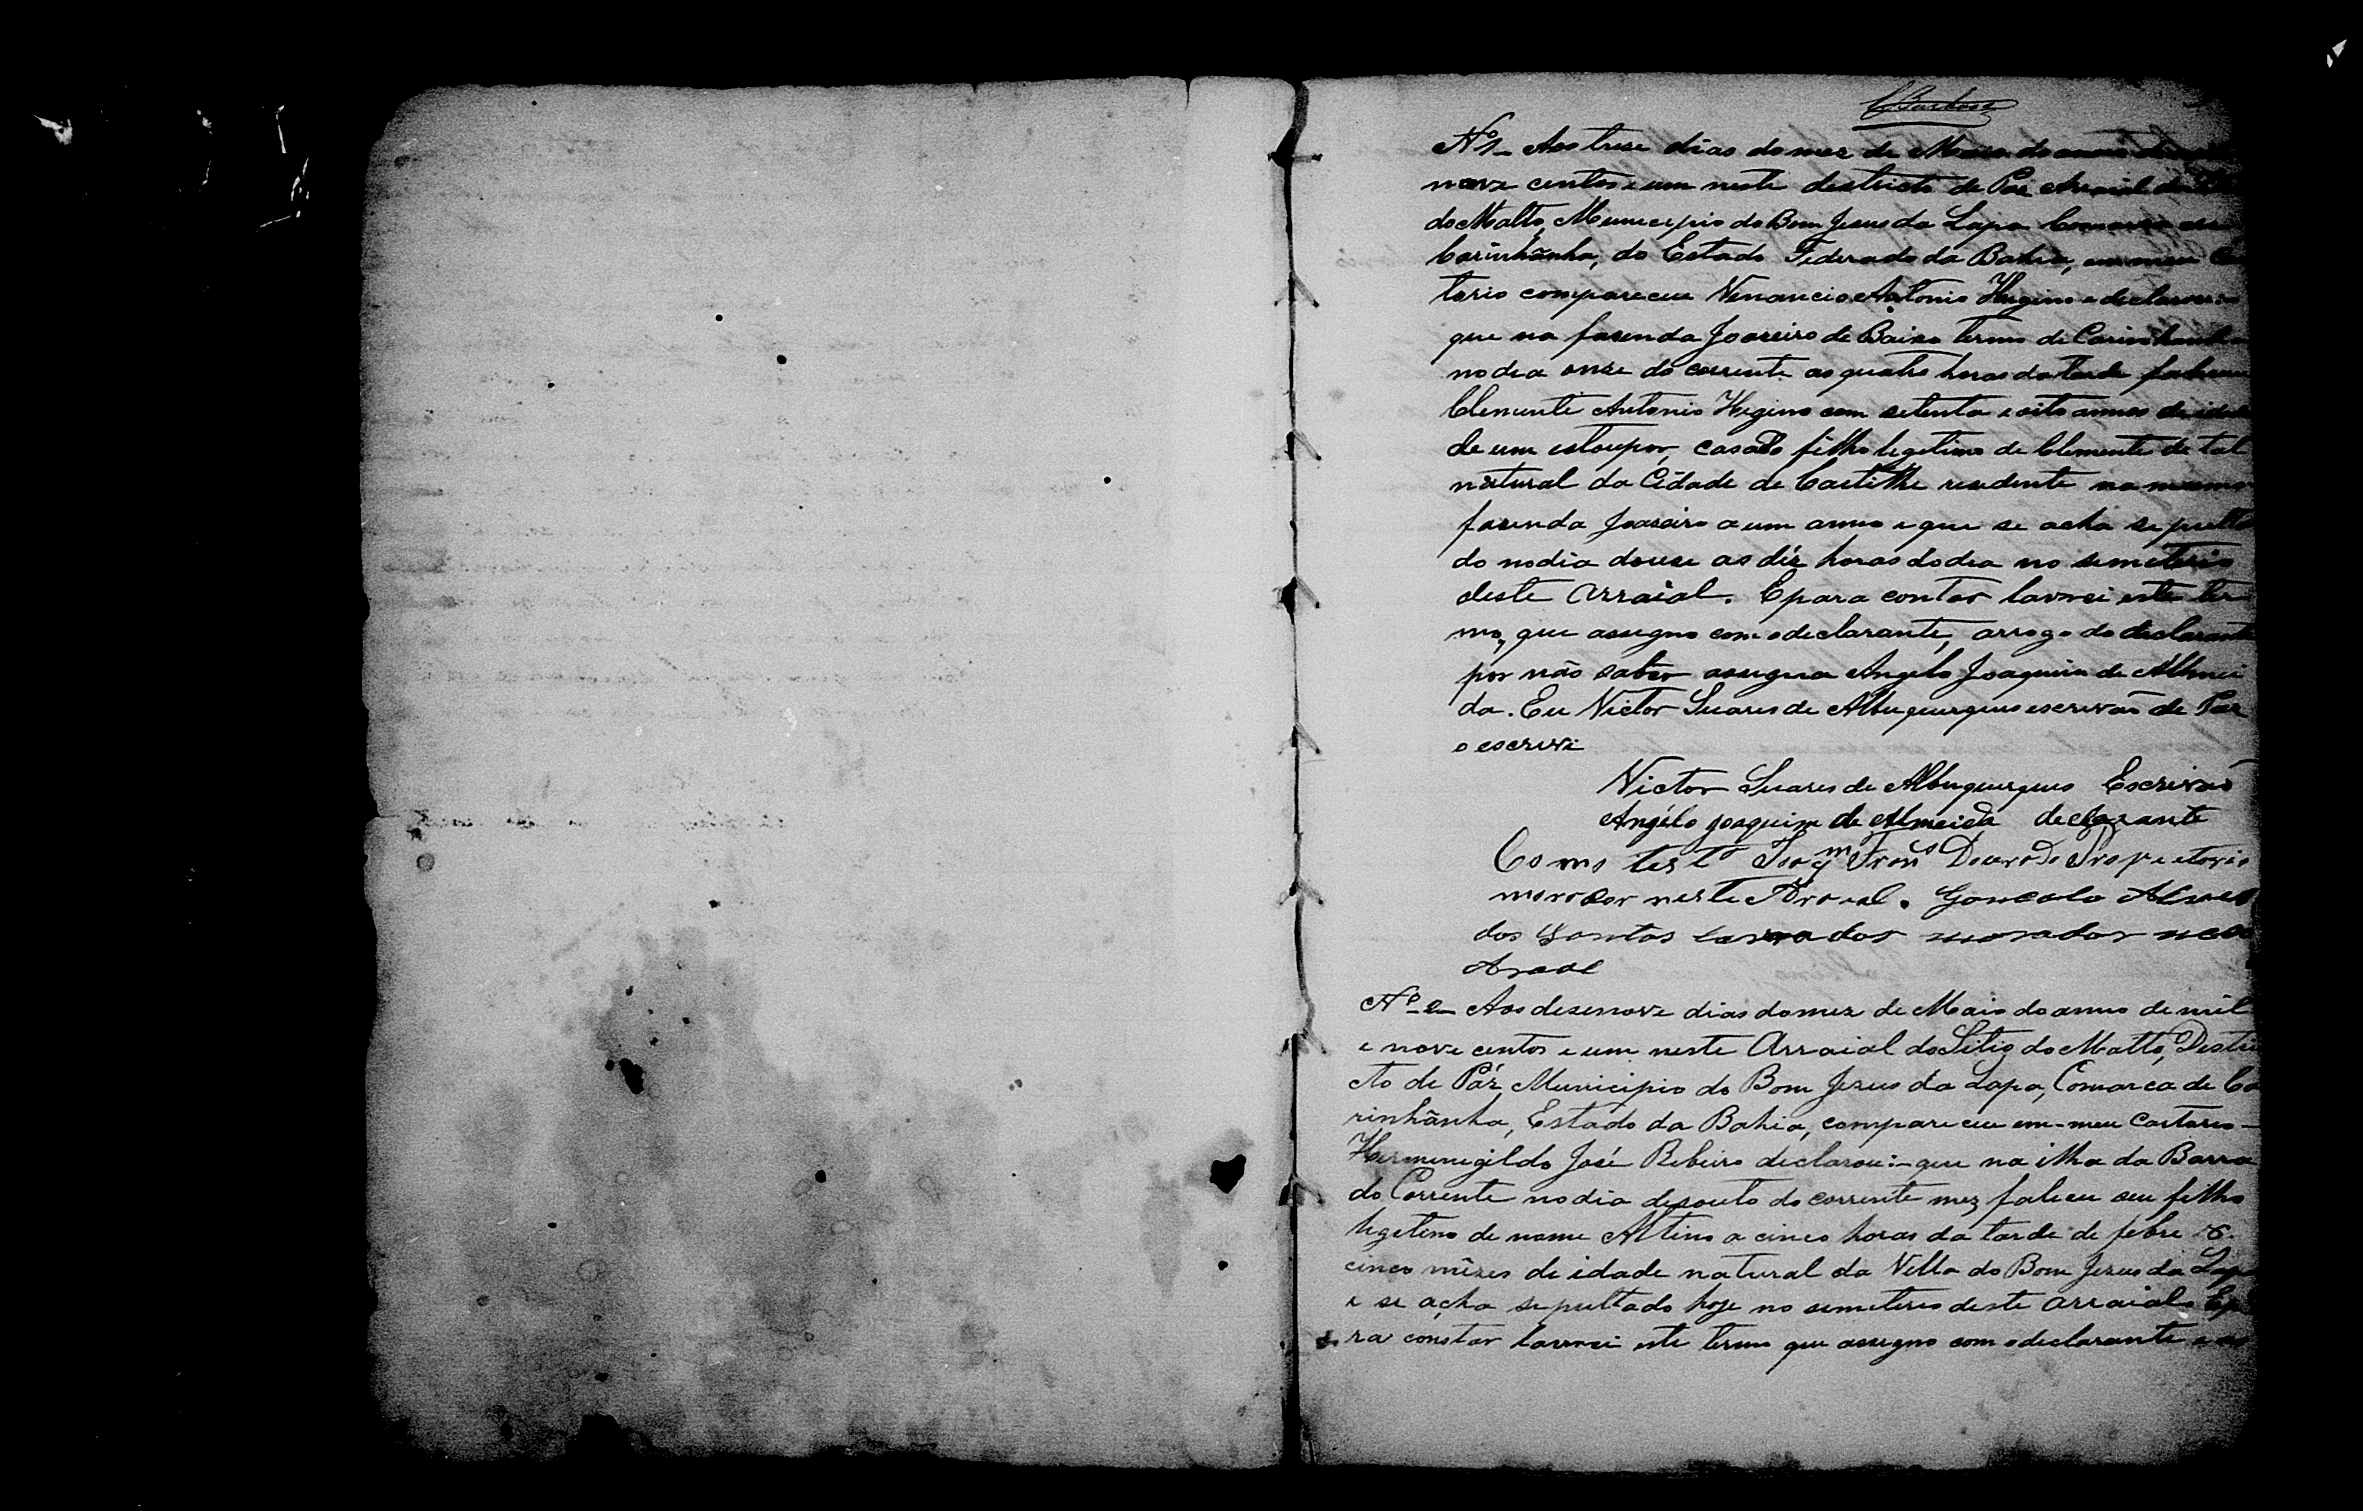 CBarbosa
Nº 1 - Aos trese dias do mez de do anno de
nove centos e um neste destricto de Paz Arraial do
do Matto, Municipio do Bom Jesus da Lapa Comarca de
Carinhãnha, do Estado Federado da Bahia, em meu Car
torio compareceu Venancio Antonio Hugino e declarou
que na fasenda Joaseiro de Baixo termo de Carinhanha
no dia onze do corrente as quatro horas da tarde faleceu
Clemente Antonio Higino com setenta e oito annos de idade
de um estoupor, casado filho legetimo de Clemente de tal
natural da Cidade de Caetithe residente na mesma
fasenda Joaseiro a um anno e que se acha sepulta
do no dia douse as déz horas do dia no semeterio
deste Arraial. E para contar lavrei este ter
mo, que assegno com o declarante, arrogo do declarante
por não saber assegna Angelo Joaquim de Almei
da. Eu Victor Suares de Albuquerques escrivão de Paz
o escrivi
Victor Suares de Albuquerques Escrivão
Angélo Joaquim de Almeida declarante
Como test.º Joaq.m Fran.co Dourado Propietorio
morador neste Arraial. Goncalo Alves
dos Santos lavrador morador neste
Araal
Nº 2 - Aos desenove dias do mez de Maio do anno de mil
e nove centos e um neste Arraial do Sitio do Matto, Destri
cto de Páz Municipio do Bom Jezus da Lapa, Comarca de Ca
rinhãnha, Estado da Bahia, compareceu em meu Cartorio -
Hermenegildo José Ribeiro declarou:- que na ilha da Barra
do Corrente no dia desouto do corrente mez faleceu seu filho
legetimo de nome Altino a cinco horas da tarde de febre
cinco mêzes de idade natural da Villa do Bom Jezus da Lapa
e se acha sepultado hoje no semeterio deste Arraial. E pa
ra constar lavrei este termo que assegno com o declarante e